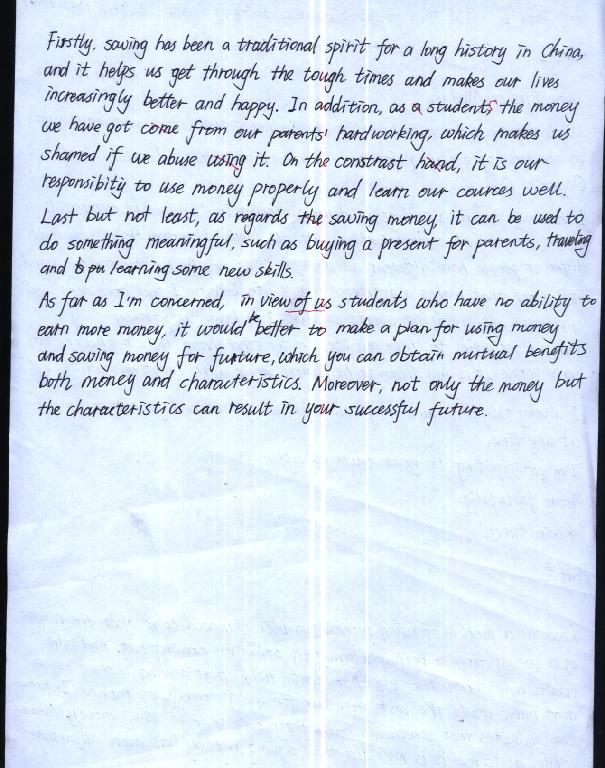 Firstly, saving has been a traditional spirit for a long history in China,
and it helps us get through the tough times and makes our lives
increasingly better and happy. In addition, as a students the money
we have got come from our parents' hardworking, which makes us
shamed if we abuse using it. On the constrast hand, it is our
responsibity to use money properly and learn our cources well.
Last but not least, as regards the saving money, it can be used to
do something meaningful, such as buying a present for parents, traveling
and learning some new skills.
As far as I'm concerned, in view of us students who have no ability to
earn more money, it would be better to make a plan for using money
and saving money for furture, which you can obtain mutual benefits
both money and characteristics. Moreover, not only the money but
the characteristics can result in your successful future.